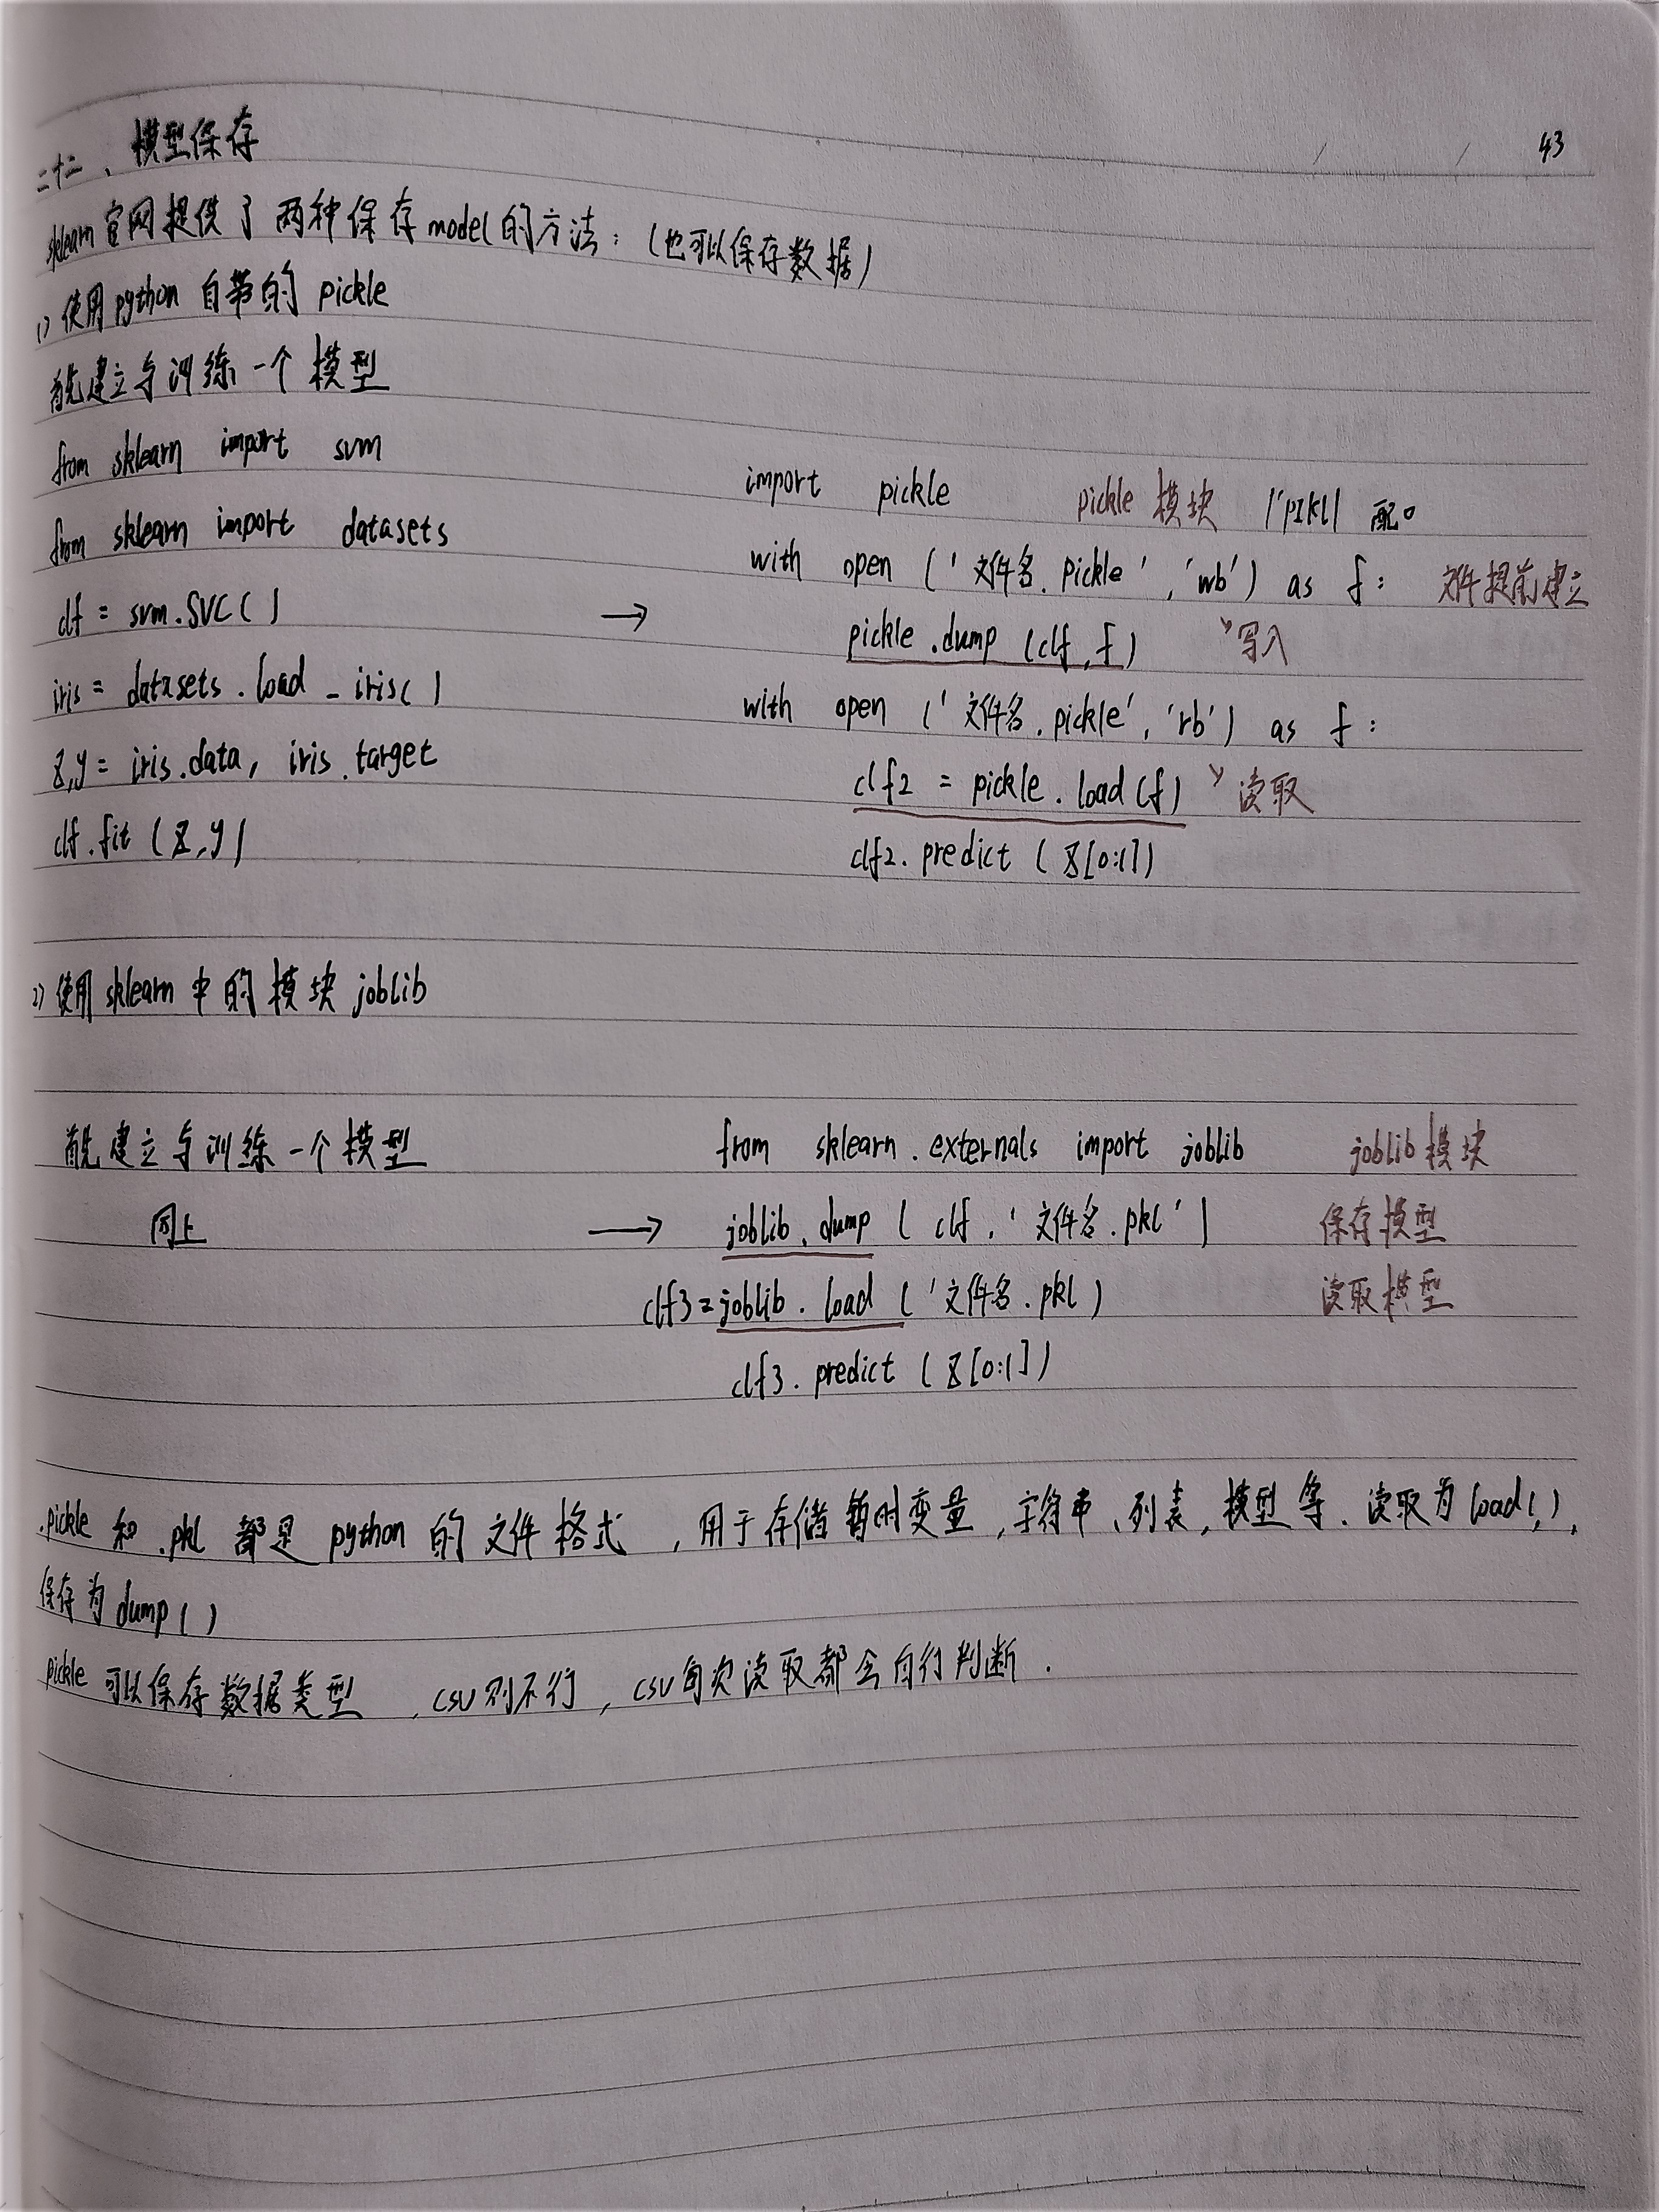 43
二十二、模型保存
sklearn官网提供了两种保存model的方法：（也可以保存数据）
1) 使用python自带的pickle
首先建立与训练一个模型
from sklearn import svm
from sklearn import datasets
clf = svm.SVC()
iris = datasets.load_iris()
X,y = iris.data, iris.target
clf.fit(X,y)
→
import pickle pickle模块 |'pɪkl|
with open ('文件名.pickle', 'wb') as f: 文件提前建立
pickle.dump(clf,f) 写入
with open ('文件名.pickle', 'rb') as f:
clf2 = pickle.load(f) 读取
clf2.predict(X[0:1])
2) 使用sklearn中的模块joblib
首先建立与训练一个模型
同上
→
from sklearn.externals import joblib joblib模块
joblib.dump(clf,'文件名.pkl') 保存模型
clf3=joblib.load('文件名.pkl) 读取模型
clf3.predict(X[0:1])
.pickle和.pkl都是python的文件格式，用于存储暂时变量，字符串、列表，模型等．读取为load(),
保存为dump()
pickle可以保存数据类型，csv则不行，csv每次读取都会自行判断．